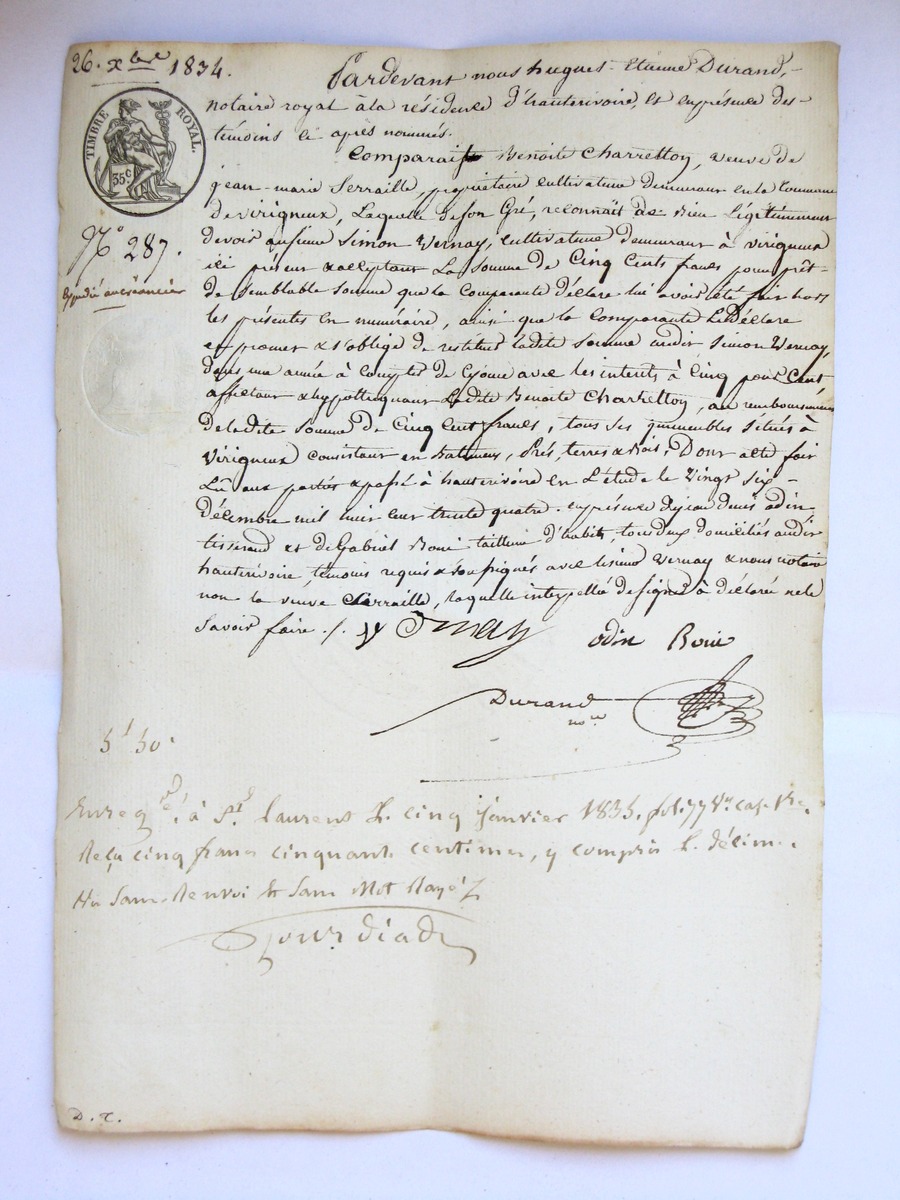 26. xbre 1834.
TIMBRE ROYAL.
35c
No 287.
Expédié au créancier
Pardevant nous hugues-Etienne Durand,
notaire royal à la résidence d'hauterivoire, et en présence des
témoins ci après nommés.
Comparait Benoite Charrettoy, veuve de
jean-marie Serraille, propriétaire cultivateur demeurant en la Commune
de virigneux, Laquelle de son Gré, reconnait de Bien Légitimement
devoir au sieur Simon Vernay, cultivateur demeurant à virigneux
ici présent & acceptant La somme de Cinq Cents francs pour prêt
de semblable somme que la Comparante déclare lui avoir été fair hors
les présentes en numéraire, ainsi que la Comparante Le Déclare
et promet & s'oblige de restituer ladite somme audit Simon Vernay,
dans une année à Compter de Cejour avec les interets à Cinq pour Cent
affectant & hypothequant Ladite Benoite Charrettoy, au remboursement
de ladite somme de Cinq Cent francs, tous ses immeubles situés à
Virigneux Consistant en Batimens, Prés, terres & Bois. Dont acte fait
Lû aux parties & passé à hauterivoire en L'étude le Vingt six
décembre mil huit cent trente quatre. en présence de jean denis odin,
tisserand et de Gabriel Boui tailleur d'habits, tous deux domiciliés audit
hauterivoire, témoins requis & soussignés avec lesieur Vernay & nous notaire
non la veuve Serraille, laquelle interpellé de signer à déclaré ne le
savoir faire ./.
odin Boui
Durand
nore
5f 50c
Enregtré à St laurent le cinq Janvier 1835. fol. 77 Vo cas. 1re
Reçu cinq francs cinquante centimes, y compris le décime.
Sans Renvoi et Sans Mot Rayé
D. T.